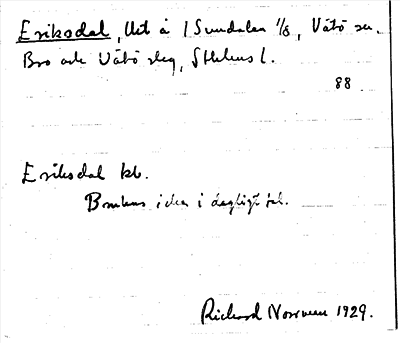 Eriksdal, Uet å 1 Sundalen 1/8, Vätö sn.
Bro och Vätö skg, Sthlms l.
88
Eriksdal kb.
Brukas icke i dagligt tal.
Richard Norrman 1929.